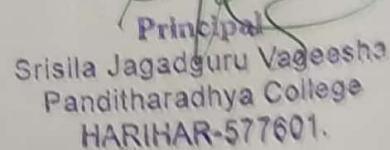 Principal
Srisila Jagadguru Vageesha
Panditharadhya College
HARIHAR-577601.